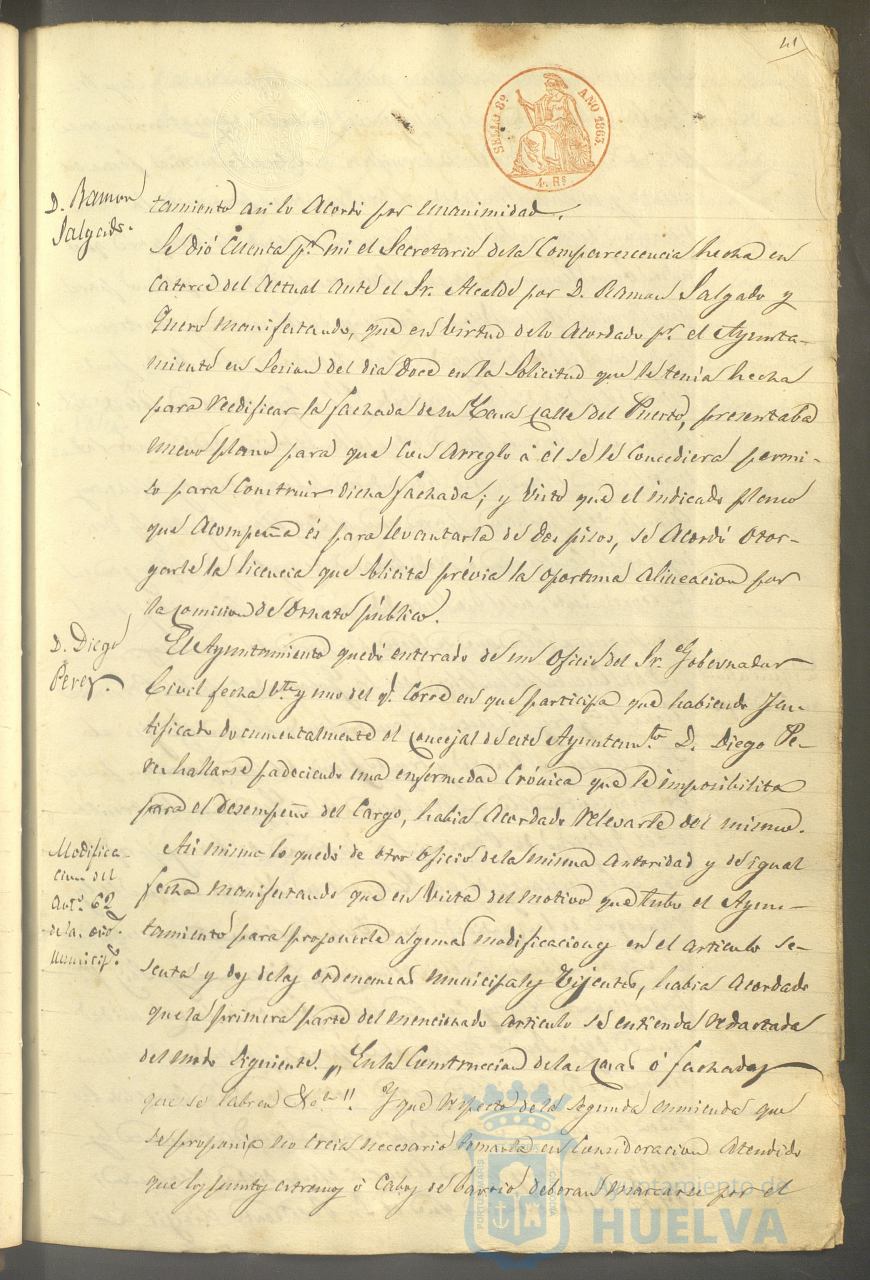 41
SELLO 8º AÑO 1863.
4. Rs
D. Ramon
Salgado.
tamiento asi lo Acordó por unanimidad.
Se dió Cuenta pr. mi el Secretario de la Comparescencia hecha en
Catorce del Actual ante el Sr. Alcalde por D. Ramon Salgado y
Quero manifestando, que en virtud de lo Acordado pr. el Ayunta-
miento en Sesion del dia doce en la Solicitud que le tenia hecha
para reedificar la fachada de su Casa Calle del Puerto, presentaba
nuevo plano para que con Arreglo á él se le Concediera permi-
so para Construir dicha fachada; y visto que el indicado plano
que Acompaña és para levantarla de dos pisos, se Acordó otor-
garle la licencia que solicita prévia la oportuna alineacion por
la comision de Ornato público.
D. Diego
Perez.
El Ayuntamiento quedó enterado de un Oficio del Sr. Gobernador
Civil fecha Vte. y uno del q. Corre en que participa que habiendo Jus-
tificado documentalmente el concejal de este Ayuntam.to D. Diego Pe-
rez hallarse padeciendo una enfermedad Crónica que le imposibilita
para el desempeño del Cargo, habia Acordado relevarle del mismo.
Modifica-
cion del
Artº. 62
de las ord.s
municip.s
Asi mismo lo quedó de otro Oficio de la misma autoridad y de igual
fecha manifestando que en vista del motivo que tubo el Ayun-
tamiento para proponerle algunas modificaciones en el articulo se-
senta y dos de las ordenanzas municipales vijentes, habia Acordado
que la primera parte del mencionado articulo se entienda redactada
del modo Siguiente. „ En la Construccion de las casas ó fachadas
que se labren &.ª". Y que respecto de la segunda enmienda que
se proponia no creia necesario tomarla en Consideracion Atendido
que los puntos estremos ó Cabos de barrio deberan marcarse por el
Ayuntamiento de
HUELVA